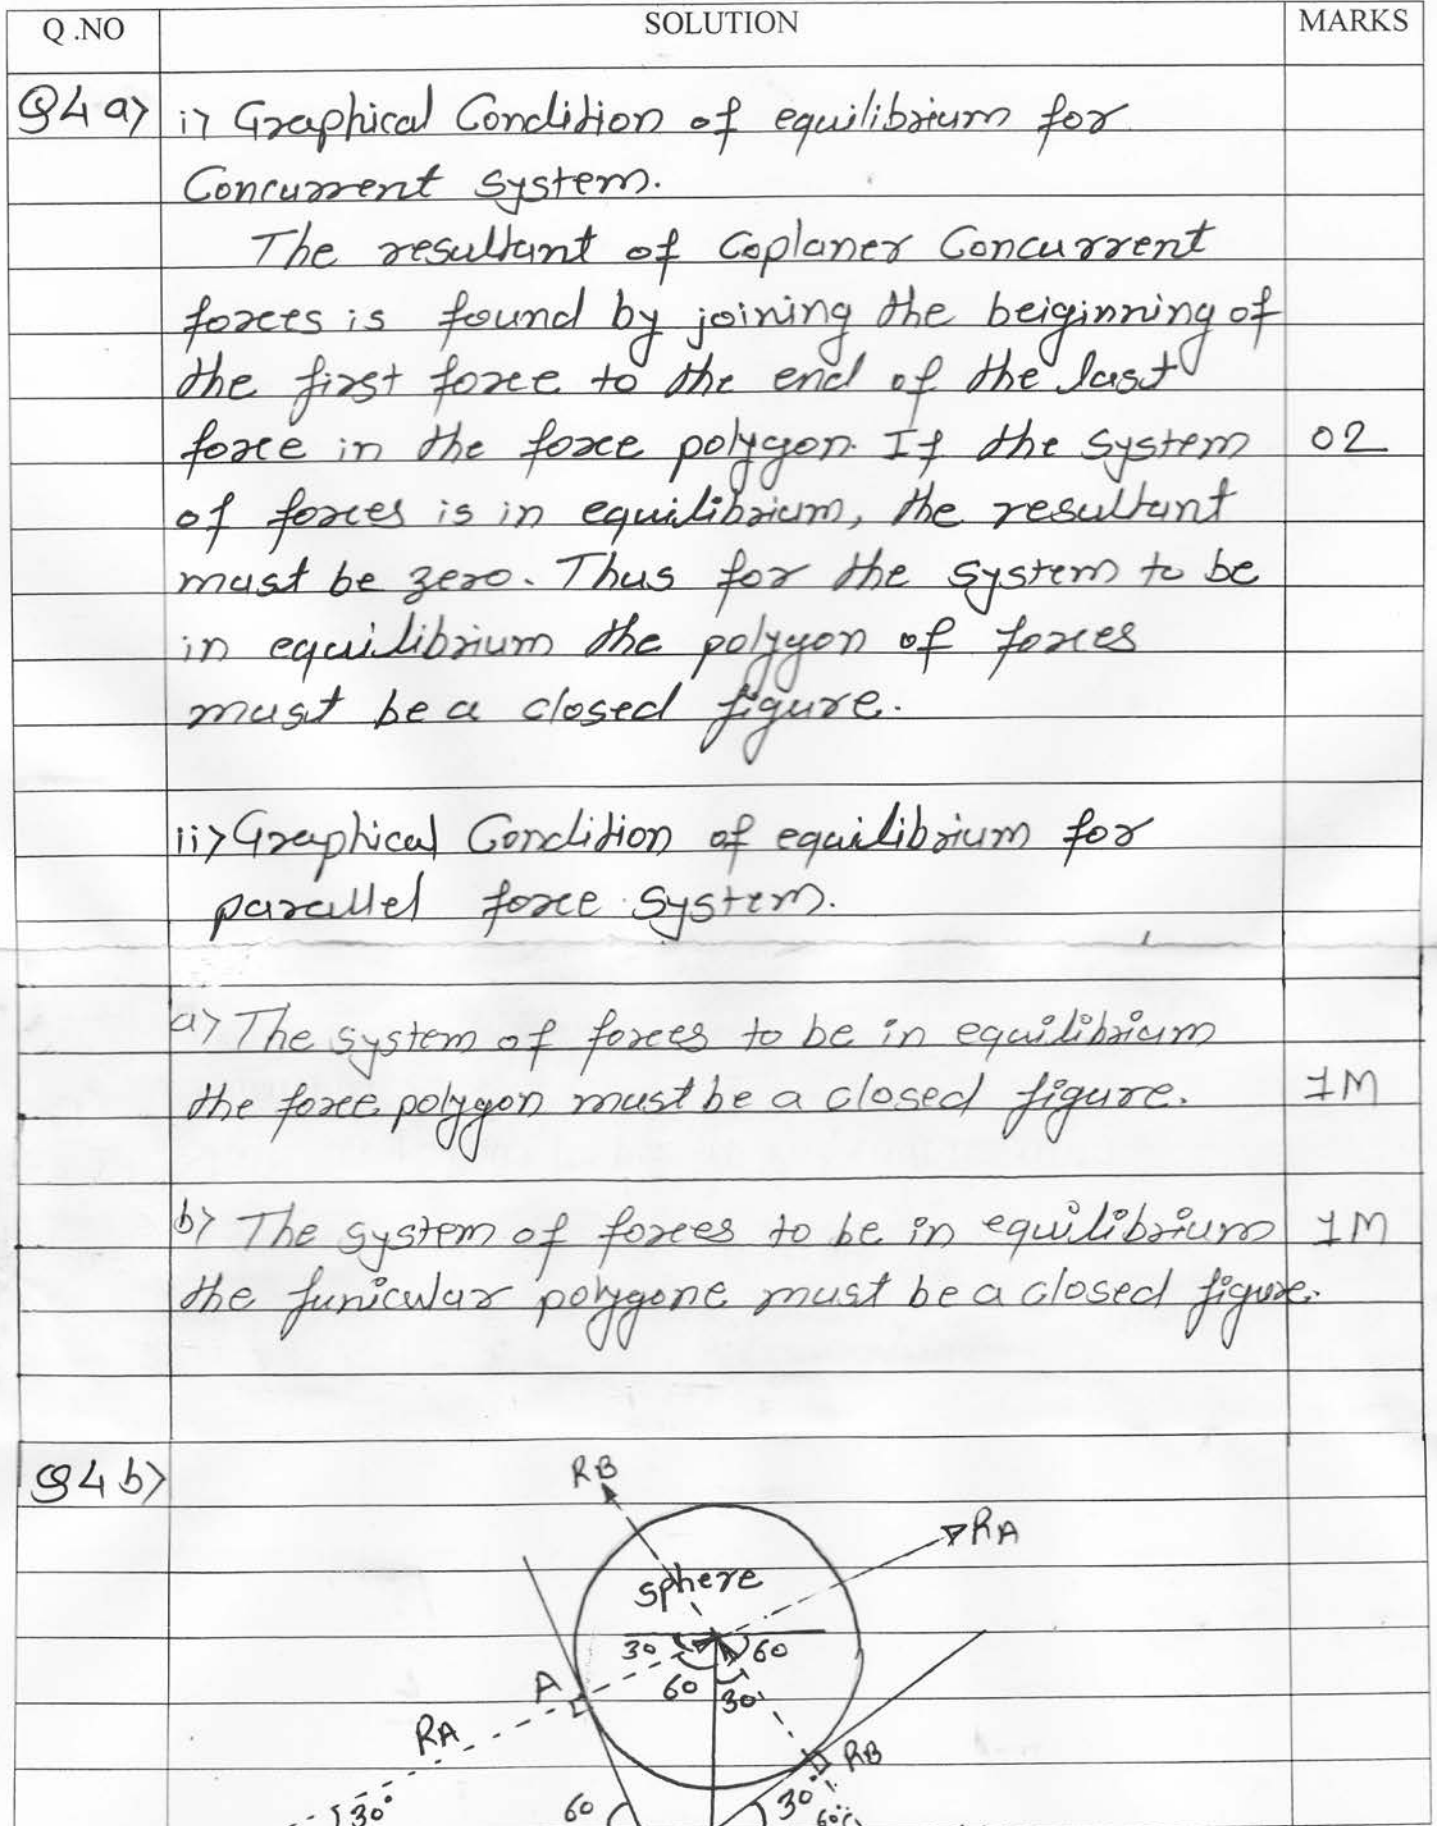 Q.NO SOLUTION MARKS
Q4 a) i) Graphical Condition of equilibrium for
Concurrent system.
The resultant of Coplaner Concurrent
forces is found by joining the beiginning of
the first force to the end of the last
force in the force polygon. If the system 02
of forces is in equilibrium, the resultant
must be zero. Thus for the system to be
in equilibrium the polygon of forces
must be a closed figure.
ii) Graphical Condition of equilibrium for
parallel force system.
a) The system of forces to be in equilibrium
the force polygon must be a closed figure. 1M
b) The system of forces to be in equilibrium 1M
the funicular polygone must be a closed figure.
Q4 b)
RB
RA
sphere
30 60
60 30
A
RA
RB
30° 60 30° 60°